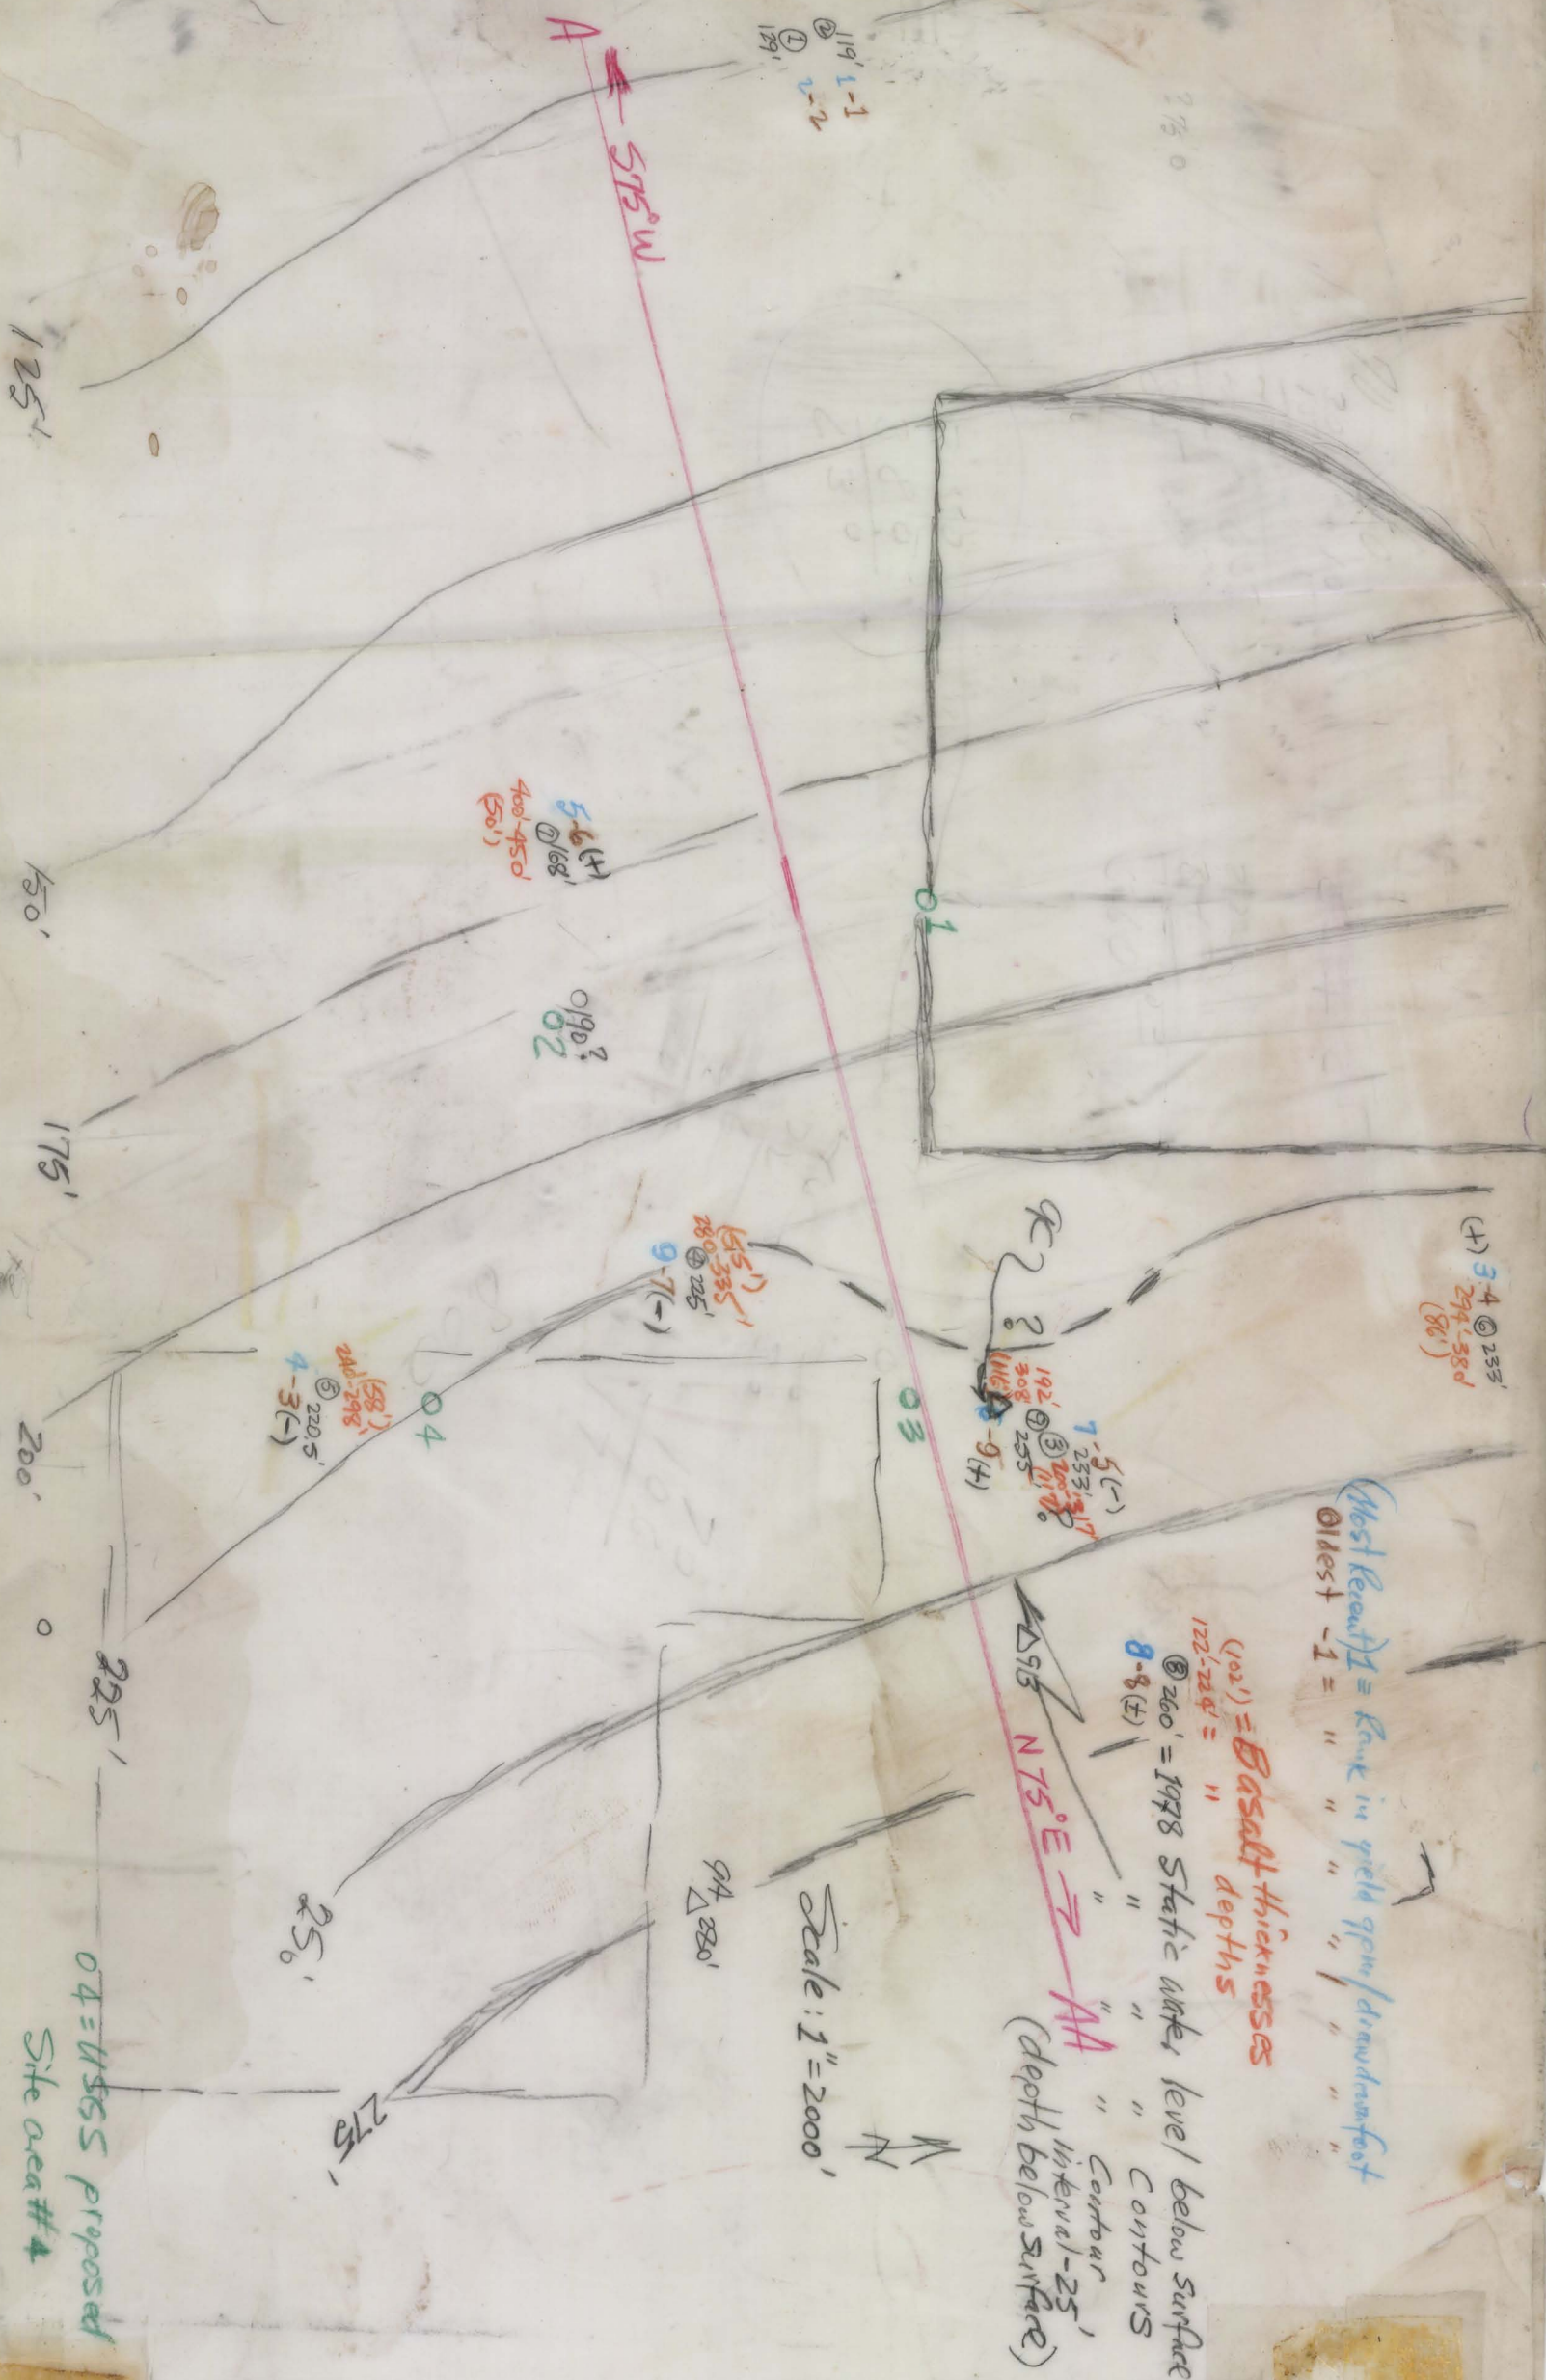 A
← S75°W
119'
②
1-1
①
129'
2-2
2750
125'
150'
175'
200'
225'
250'
275'
5-6(+)
⑦168'
400'-450'
(50')
01
0190?
02
(55')
280-335'
④225'
9-7(-)
(58')
240-298'
⑤220.5'
4-3(-)
04
03
9C
?
192'
308'
(116')
⑨255
-9(+)
7-5(-)
233'
③200-317'
(117')
(+)3-4⑥233'
294'-380'
(86')
(Most Recent)1 = Rank in yield gpm/drawdown foot
Oldest -1 = " " " " " " "
(102') = Basalt thicknesses
122'-224' = " depths
⑧260' = 1978 Static water level below surface
8-8(±)
" " " Contours
" " " Contour
interval-25'
(depth below surface)
9B
N75°E →
AA
9A
△280'
Scale: 1"=2000'
N
04 = USGS proposed
Site area #4